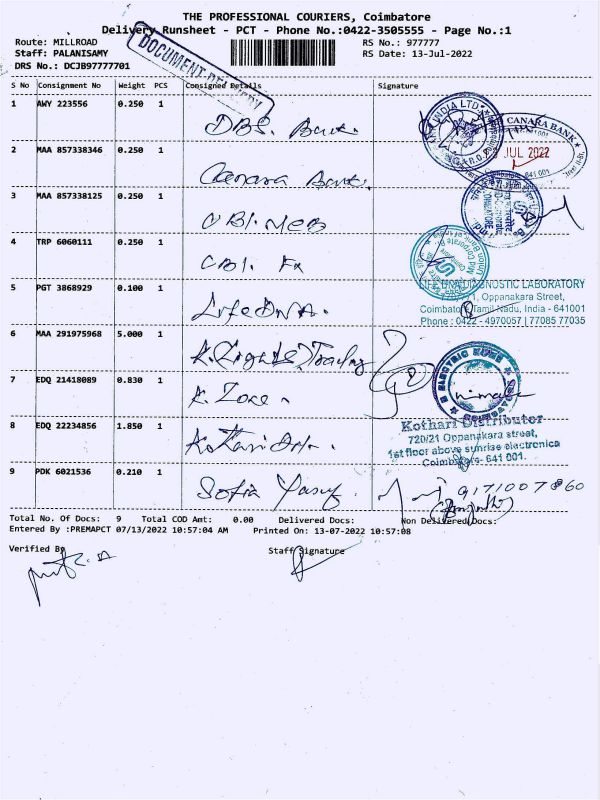 THE PROFESSIONAL COURIERS, Coimbatore
Delivery Runsheet - PCT - Phone No.:0422-3505555 - Page No.:1
Route: MILLROAD RS No.: 977777
Staff: PALANISAMY RS Date: 13-Jul-2022
DRS No.: DCJB97777701
DOCUMENT DELIVERY
S No Consignment No Weight PCS Consigned Details Signature
1 AWY 223556 0.250 1 DBS. Bank.
INDIA LTD
CANARA BANK
JUL 2022
641 001
2 MAA 857338346 0.250 1 Canara Bank.
3 MAA 857338125 0.250 1 UBI. MCB
4 TRP 6060111 0.250 1 CBI. Fx
5 PGT 3868929 0.100 1 Life DNA.
LIFE DNA DIAGNOSTIC LABORATORY
Oppanakara Street,
Coimbatore, Tamil Nadu, India - 641001
Phone : 0422 - 4970057 | 77085 77035
6 MAA 291975968 5.000 1 K. Trading
7 EDQ 21418089 0.830 1 K. Zone
ELECTRIC
8 EDQ 22234856 1.850 1 Kothari
Kothari Distributor
720/21 Oppanakara street,
1st floor above sunrise electronica
Coimbatore- 641 001.
9 PDK 6021536 0.210 1 Sofia Yusuf.
9171007860
Total No. Of Docs: 9 Total COD Amt: 0.00 Delivered Docs: Non Delivered Docs:
Entered By :PREMAPCT 07/13/2022 10:57:04 AM Printed On: 13-07-2022 10:57:08
Verified By Staff Signature